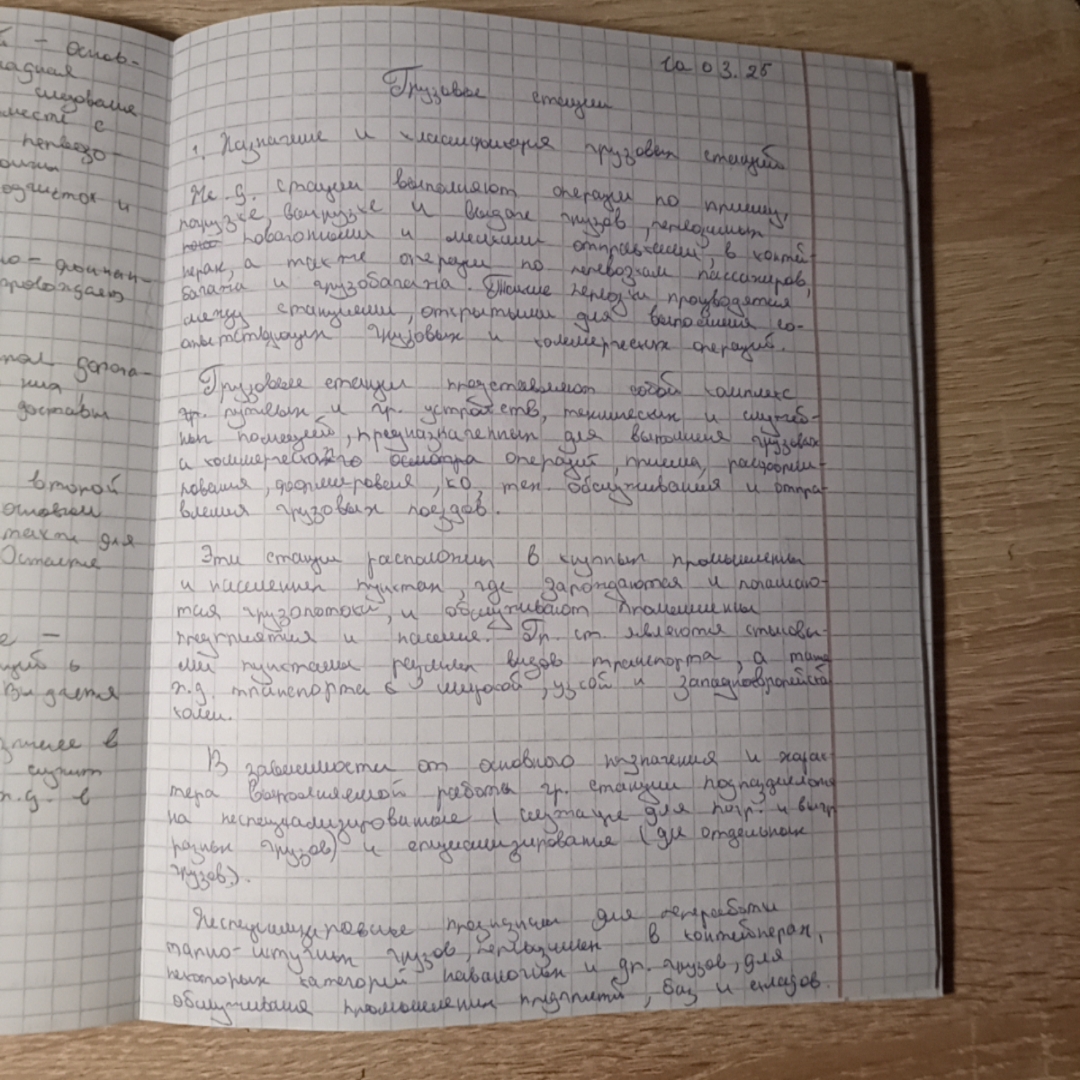 й - основ-
ладная
следования
вместе с
перевозо-
ом и
то-финан-
провождает
дорога-
ния
доставки
второй
основном
также для
Остаётся
Выдается
в
служит
п.д. в
10.03.25
Грузовые станции
1. Назначение и классификация грузовых станций
Ж.д. станции выполняют операции по приему,
погрузке, выгрузке и выдаче грузов, перевозимых
повагонными и мелкими отправками, в контей-
нерах, а также операции по перевозкам пассажиров,
багажа и грузобагажа. Такие перевозки производятся
между станциями, открытыми для выполнения со-
ответствующих грузовых и коммерческих операций.
Грузовые станции представляют собой комплекс
гр. путевых и гр. устройств, технических и служеб-
ных помещений, предназначенных для выполнения грузовых
и коммерческого осмотра операций, приема, расформи-
рования, формирования, ко, тех. обслуживания и отпра-
вления грузовых поездов.
Эти станции расположены в крупных промышленных
и населенных пунктах, где зарождаются и погашаю-
тся грузопотоки, и обслуживают промышленные
предприятия и население. Гр. ст. являются стыковы-
ми пунктами разных видов транспорта, а также
ж.д. транспорта с широкой, узкой и западноевропейской
колеи.
В зависимости от основного назначения и харак-
тера выполняемой работы гр. станции подразделяют
на неспециализированные (служащие для погр. и выгр
разных грузов) и специализирования (для отдельных
грузов).
Неспециализировные предназначены для переработки
тарно-штучных грузов, перевозимых в контейнерах,
некоторых категорий навалочных и др. грузов, для
обслуживания промышленных предприятий, баз и складов.